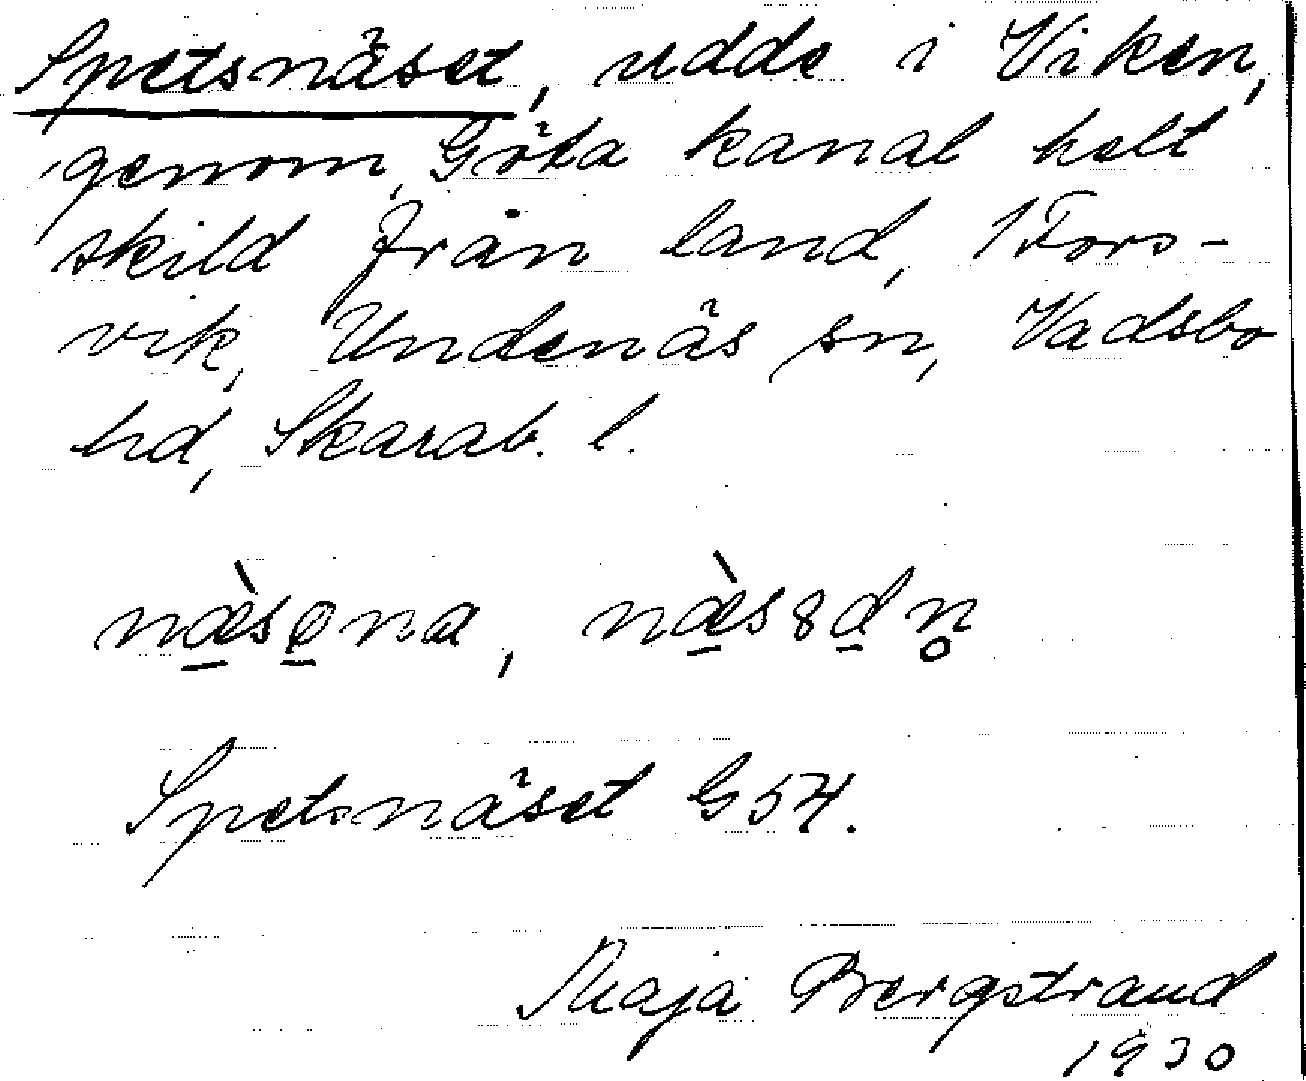 Spetsnäset, udde i Viken,
genom Göta kanal helt
skild från land, 1 Fors-
vik, Undenäs sn, Vadsbo
hd, Skarab. l.
Spetsnäset G 54.
Maja Bergstrand
1930